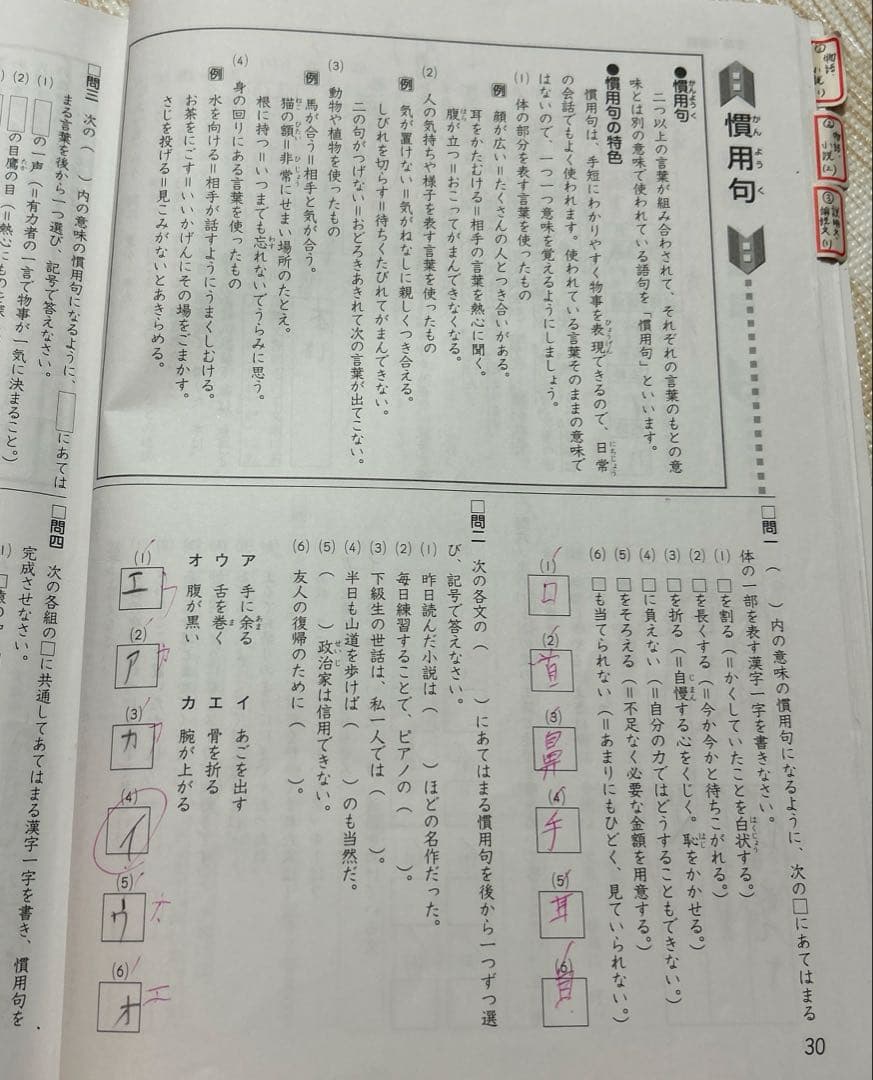 慣用句
かんようく
●慣用句
かんようく
二つ以上の言葉が組み合わされて、それぞれの言葉のもとの意
味とは別の意味で使われている語句を「慣用句」といいます。
●慣用句の特色
慣用句は、手短にわかりやすく物事を表現できるので、日常
ひょうげん
にちじょう
の会話でもよく使われます。使われている言葉そのままの意味で
はないので、一つ一つ意味を覚えるようにしましょう。
(1) 体の部分を表す言葉を使ったもの
例 顔が広い＝たくさんの人とつき合いがある。
耳をかたむける＝相手の言葉を熱心に聞く。
腹が立つ＝おこってがまんできなくなる。
はら
(2) 人の気持ちや様子を表す言葉を使ったもの
例 気が置けない＝気がねなしに親しくつき合える。
しびれを切らす＝待ちくたびれてがまんできない。
二の句がつげない＝おどろきあきれて次の言葉が出てこない。
(3) 動物や植物を使ったもの
例 馬が合う＝相手と気が合う。
猫の額＝非常にせまい場所のたとえ。
ねこ ひたい ひじょう
根に持つ＝いつまでも忘れないでうらみに思う。
わす
(4) 身の回りにある言葉を使ったもの
例 水を向ける＝相手が話すようにうまくしむける。
お茶をにごす＝いいかげんにその場をごまかす。
さじを投げる＝見こみがないとあきらめる。
□問一 （　）内の意味の慣用句になるように、次の□にあてはまる
体の一部を表す漢字一字を書きなさい。
(1) □を割る（＝かくしていたことを白状する。）
はくじょう
(2) □を長くする（＝今か今かと待ちこがれる。）
(3) □を折る（＝自慢する心をくじく。恥をかかせる。）
じまん
はじ
(4) □に負えない（＝自分の力ではどうすることもできない。）
(5) □をそろえる（＝不足なく必要な金額を用意する。）
(6) □も当てられない（＝あまりにもひどく、見ていられない。）
(1) 口
(2) 首
(3) 鼻
(4) 手
(5) 耳
(6) 目
□問二 次の各文の（　）にあてはまる慣用句を後から一つずつ選
び、記号で答えなさい。
(1) 昨日読んだ小説は（　）ほどの名作だった。
(2) 毎日練習することで、ピアノの（　）。
(3) 下級生の世話は、私一人では（　）。
(4) 半日も山道を歩けば（　）のも当然だ。
(5) （　）政治家は信用できない。
せいじ
(6) 友人の復帰のために（　）。
ア 手に余る
あま
イ あごを出す
ウ 舌を巻く
ま
エ 骨を折る
オ 腹が黒い
カ 腕が上がる
(1) エ ウ
(2) ア カ
(3) カ ア
(4) イ
(5) ウ オ
(6) オ エ
30
□問三 次の（　）内の意味の慣用句になるように、□にあては
まる言葉を後から一つ選び、記号で答えなさい。
(1) □の一声（＝有力者の一言で物事が一気に決まること。）
(2) □の目鷹の目（＝熱心にものを探
たか
□問四 次の各組の□に共通してあてはまる漢字一字を書き、慣用句を
完成させなさい。
① 物語・小説(1)
② 物語・小説(2)
③ 説明文・論説文(1)